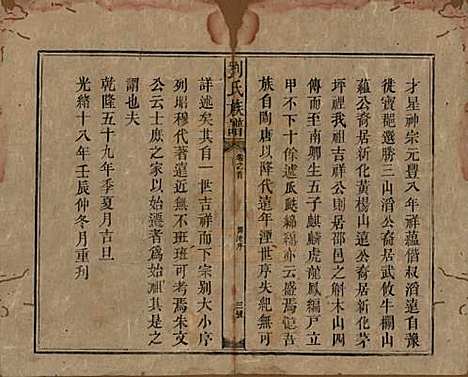 才星神宗元豐八年祥蘊偕叔滔遠自豫
徙寶龍選勝三山滔公裔居武攸牛欄山
蘊公裔居新化黃楊山遠公裔居新化茅
坪裡我祖吉祥公則居邵邑之斛木山四
傳而至南卿生五子麒麟虎龍鳳編戶立
甲不下十餘遽瓜瓞綿穩亦云盛焉說吾
族自陶唐以降代遠年湮世序失紀無可
劉氏族譜
卷之首
三號
詳述矣其自一世吉祥而下宗別大小序
列昭穆代著遠近無不班班可考焉朱文
公云士庶之家以始遷者為始祖其斯之
謂也夫
乾隆五十九年季夏月吉旦
光緒十八年壬辰仲冬月重刊